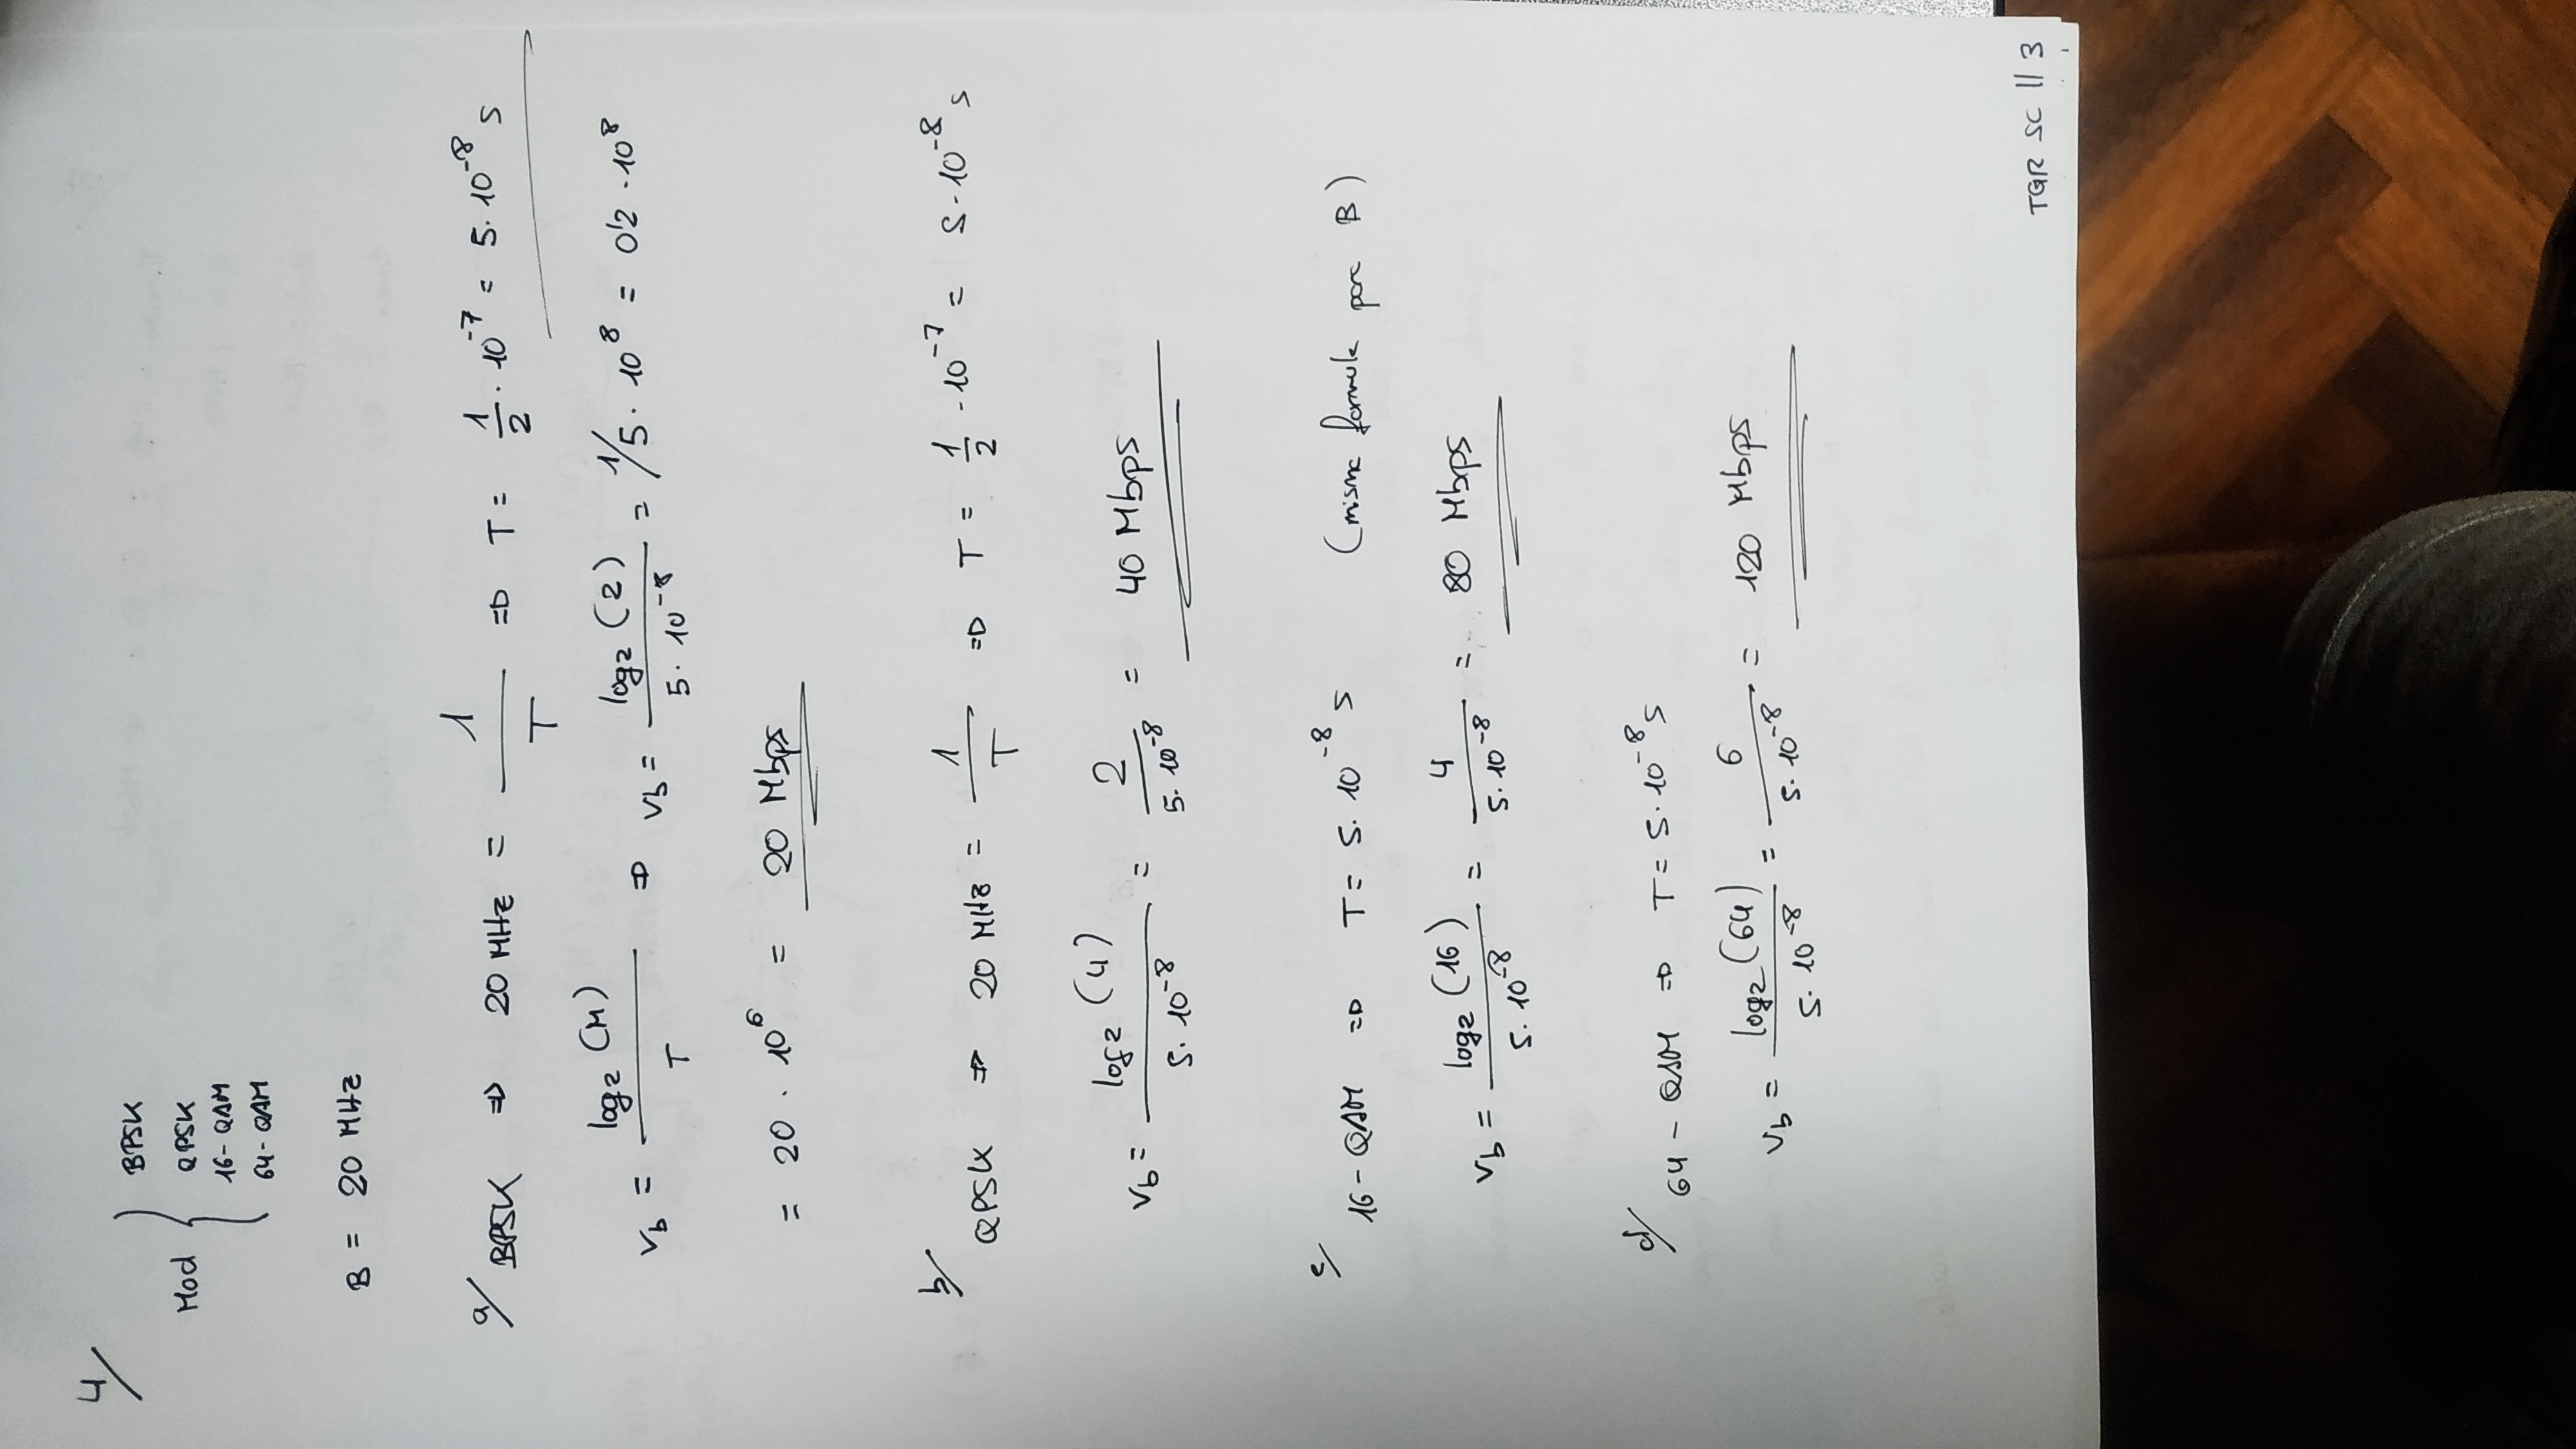 4/
Mod { BPSK
QPSK
16-QAM
64-QAM
B = 20 MHz
a/ BPSK ⇒ 20 MHz = 1/T ⇒ T = 1/2 · 10^-7 = 5·10^-8 s
Vb = log2 (M)/T ⇒ Vb = log2 (2)/5·10^-8 = 1/5 · 10^8 = 0'2 · 10^8
= 20 · 10^6 = 20 Mbps
b/ QPSK ⇒ 20 MHz = 1/T ⇒ T = 1/2 · 10^-7 = 5·10^-8 s
Vb = log2 (4)/5·10^-8 = 2/5·10^-8 = 40 Mbps
c/ 16-QAM ⇒ T = 5·10^-8 s (misma formula para B)
Vb = log2 (16)/5·10^-8 = 4/5·10^-8 = 80 Mbps
d/ 64-QAM ⇒ T = 5·10^-8 s
Vb = log2 (64)/5·10^-8 = 6/5·10^-8 = 120 Mbps
TGR SC || 3